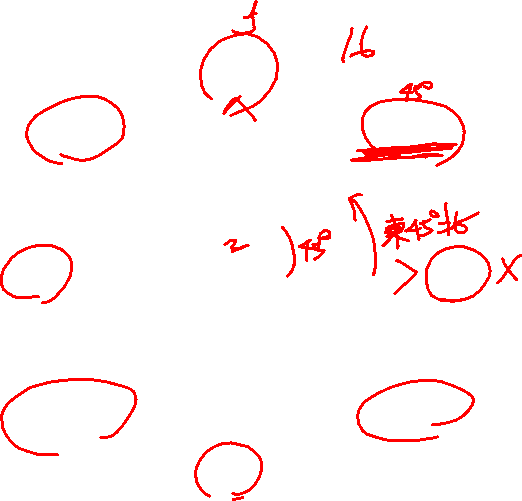 16
45°
2
45°
東45°北
X